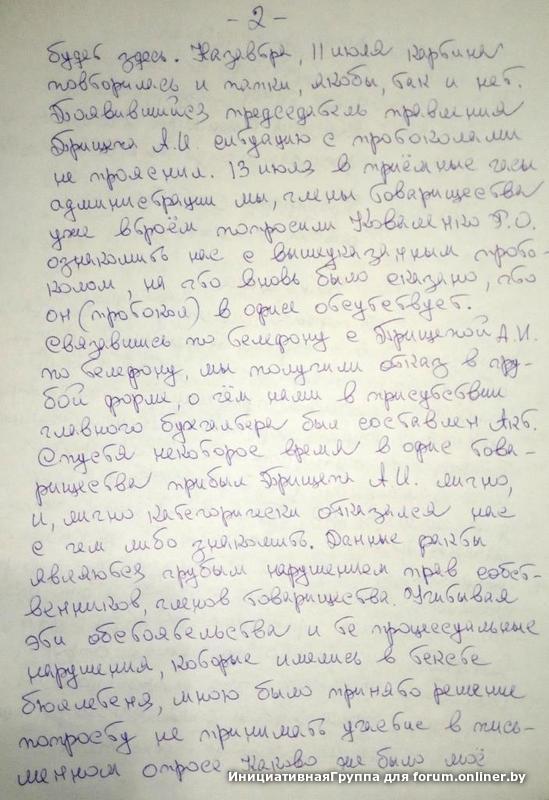 - 2 -
будет здесь. Назавтра, 11 июля картина
повторилась и папки, якобы, так и нет.
Появившийся председатель правления
Грищепа А.И. ситуацию с протоколами
не прояснил. 13 июля в приёмные часы
администрации мы, члены товарищества
уже втроём попросили Коваленко Р.О.
ознакомить нас с вышеуказанным прото-
колом, на что вновь было сказано, что
он (протокол) в офисе отсутствует.
Связавшись по телефону с Грищепой А.И.
по телефону, мы получили отказ в гру-
бой форме, о чём нами в присутствии
главного бухгалтера был составлен Акт.
Спустя некоторое время в офис това-
рищества прибыл Грищепа А.И. лично,
и, лично категорически отказался нас
с чем либо знакомить. Данные факты
являются грубым нарушением прав собст-
венников, членов товарищества. Учитывая
эти обстоятельства и те процессуальные
нарушения, которые имелись в тексте
бюллетеня, мною было принято решение
попросту не принимать участие в пись-
менном опросе. Каково же было моё
ИнициативнаяГруппа для forum.onliner.by